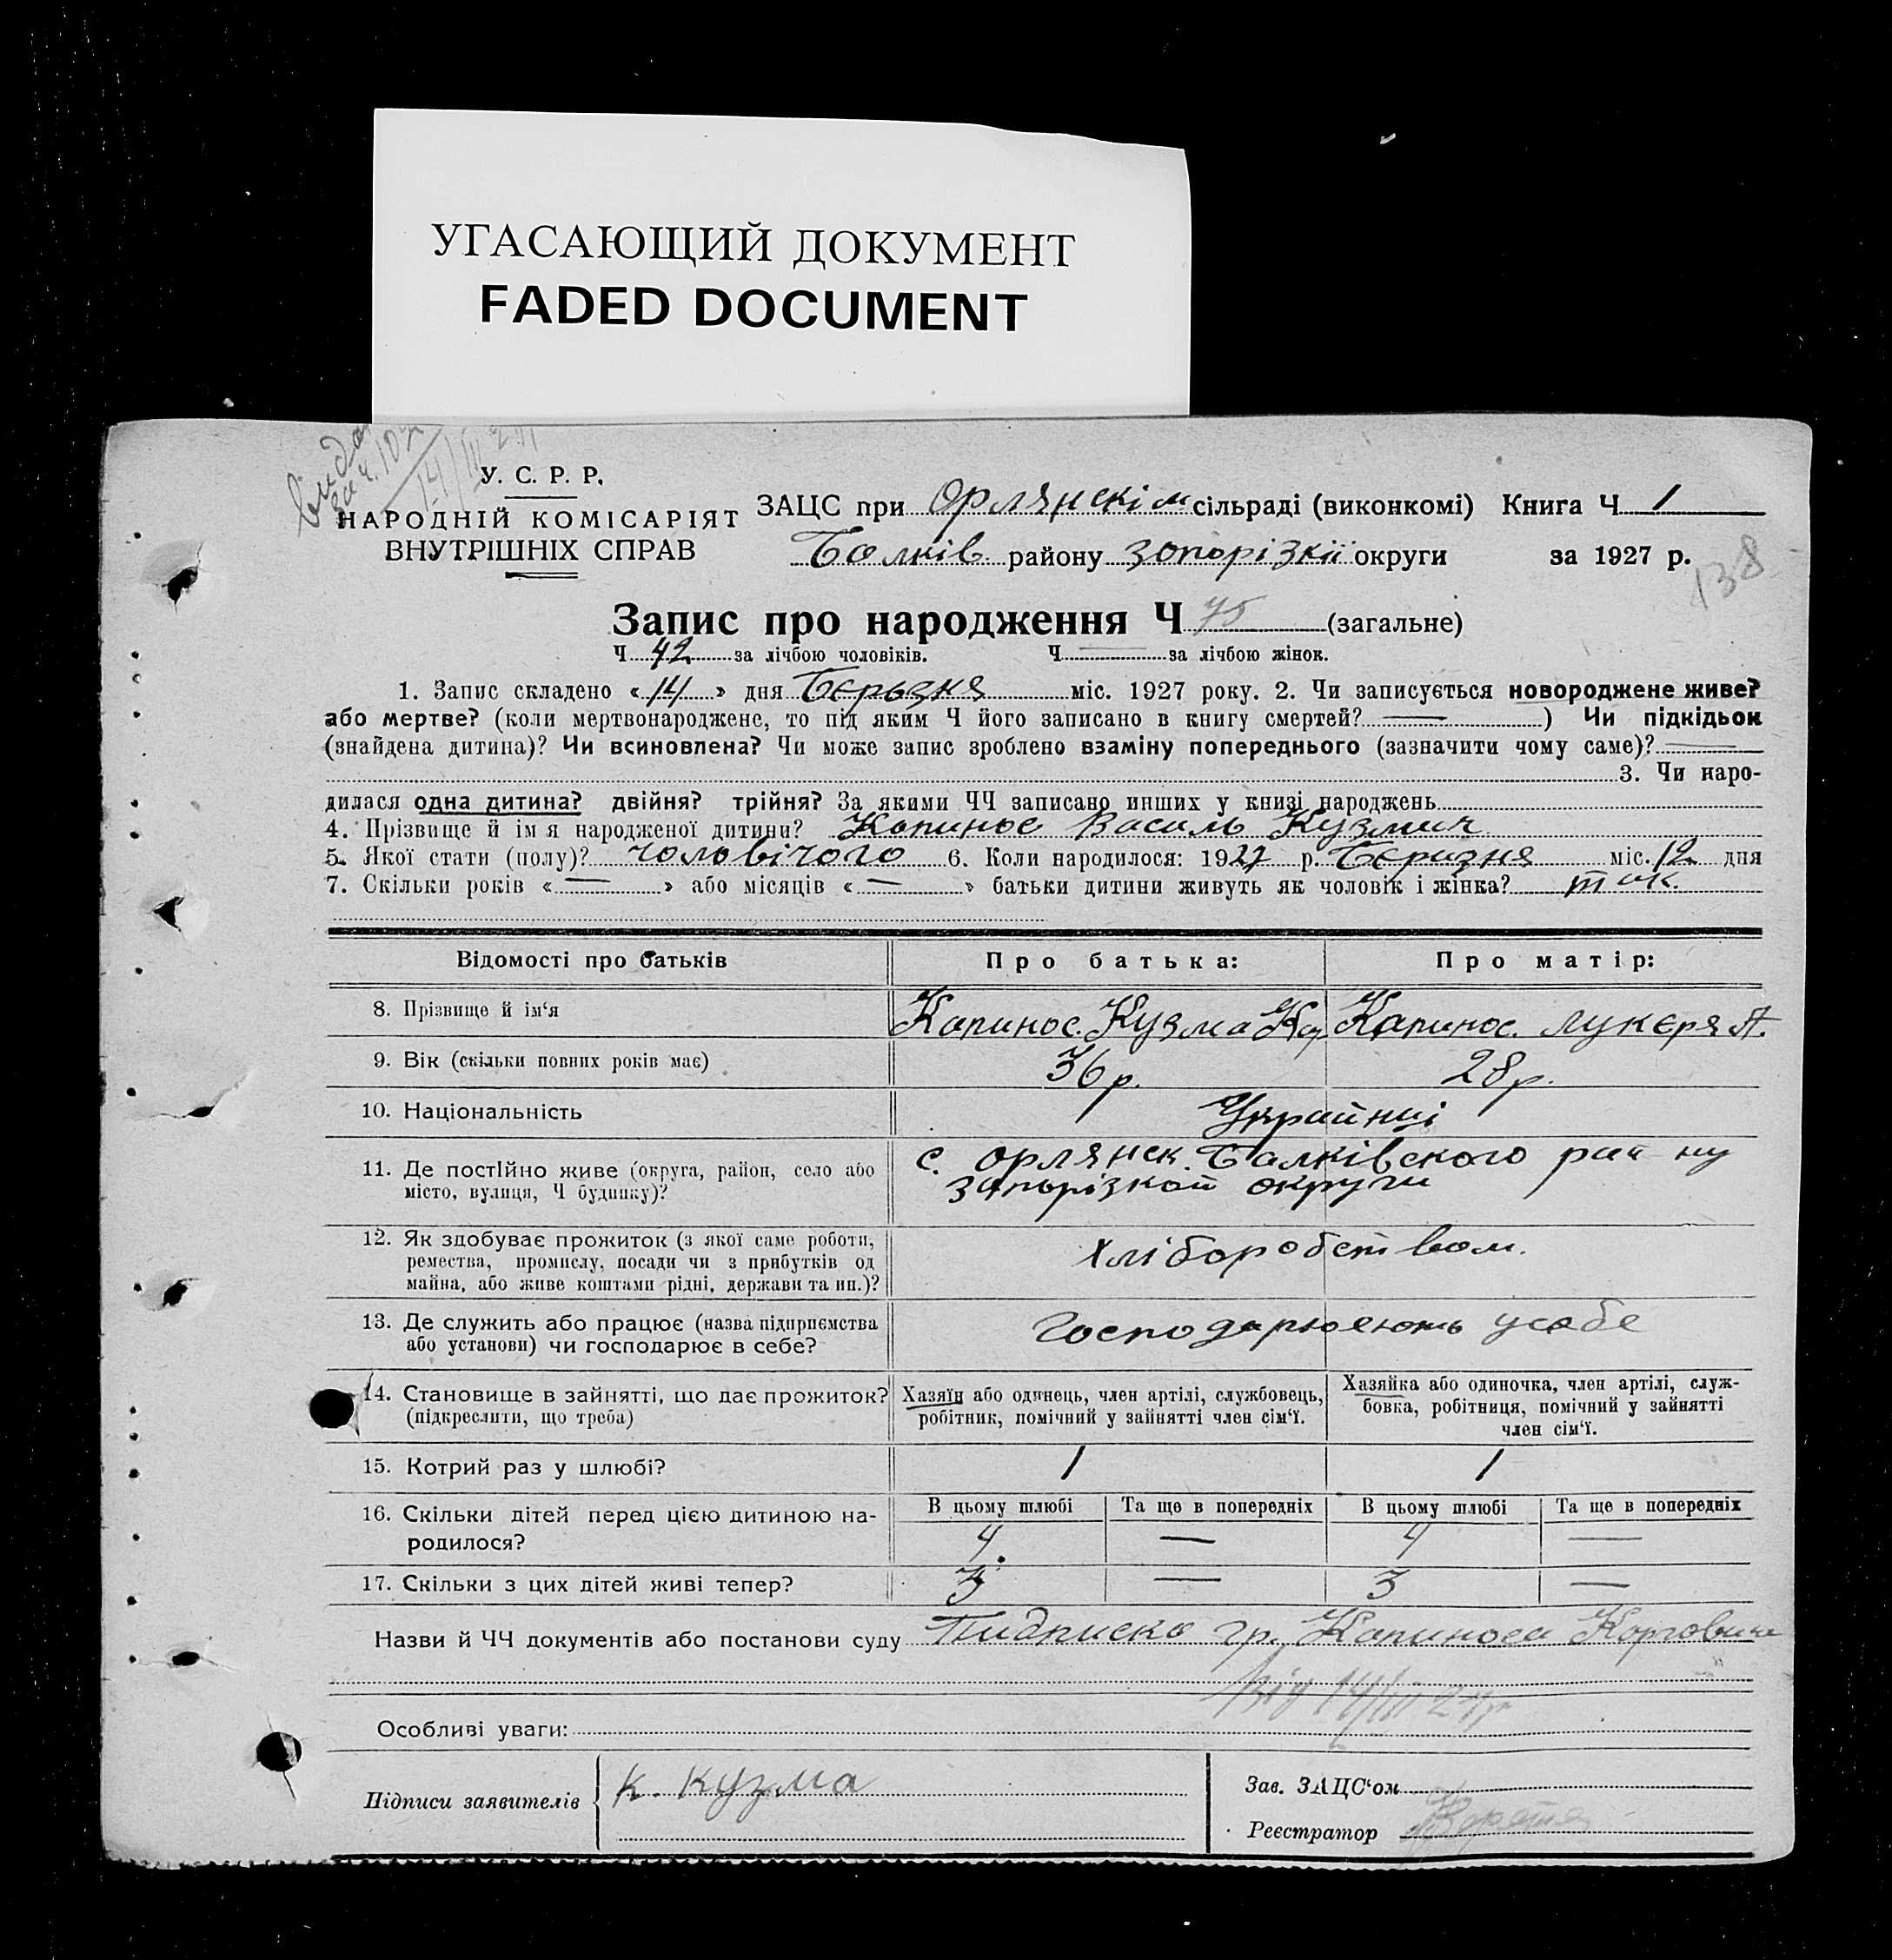 УГАСАЮЩИЙ ДОКУМЕНТ
FADED DOCUMENT
У. С. Р. Р.
НАРОДНІЙ КОМІСАРІЯТ
ВНУТРІШНІХ СПРАВ
ЗАЦС при Орлянскім сільраді (виконкомі) Книга Ч 1
Балків району Запорізкїї округи за 1927 р.
138
Запис про народження Ч 75 (загальне)
Ч 42 за лічбою чоловіків. Ч — за лічбою жінок.
1. Запис складено «14» дня Берьзня міс. 1927 року. 2. Чи записується новороджене живе?
або мертве? (коли мертвонароджене, то під яким Ч його записано в книгу смертей? —) Чи підкідьок
(знайдена дитина)? Чи всиновлена? Чи може запис зроблено взаміну попереднього (зазначити чому саме)? —
3. Чи наро-
дилася одна дитина? двійня? трійня? За якими ЧЧ записано инших у книзі народжень
4. Прізвище й імя народженої дитини? Капинос Василь Кузмич
5. Якої стати (полу)? чоловічого 6. Коли народилося: 1927 р. Беризня міс. 12 дня
7. Скільки років «—» або місяців «—» батьки дитини живуть як чоловік і жінка? так.
Відомості про батьків Про батька: Про матір:
8. Прізвище й ім‘я Капинос. Кузма Капинос. Лукєря А.
9. Вік (скільки повних років має) 36 р. 28 р.
10. Національність Украйнці
11. Де постійно живе (округа, район, село або
місто, вулиця, Ч будинку)?
с. Орлянск. Балківського району
Запорізкой округи
12. Як здобуває прожиток (з якої саме роботи,
ремества, промислу, посади чи з прибутків од
майна, або живе коштами рідні, держави та ин.)?
Хліборобством.
13. Де служить або працює (назва підприємства
або установи) чи господарює в себе?
Господарюеють усебе
14. Становище в зайнятті, що дає прожиток?
(підкреслити, що треба)
Хазяїн або одинець, член артілі, службовець,
робітник, помічний у зайнятті член сім‘ї.
Хазяйка або одиночка, член артілі, служ-
бовка, робітниця, помічний у зайнятті
член сім‘ї.
15. Котрий раз у шлюбі? 1 1
16. Скільки дітей перед цією дитиною на-
родилося?
В цьому шлюбі Та ще в попередніх В цьому шлюбі Та ще в попередніх
4. — 4 —
17. Скільки з цих дітей живі тепер? 3 — 3 —
Назви й ЧЧ документів або постанови суду Пидписка гр. Капиноса
від 14/III 27р
Особливі уваги:
Підписи заявителів К. Кузма
Зав. ЗАЦС‘ом
Реєстратор